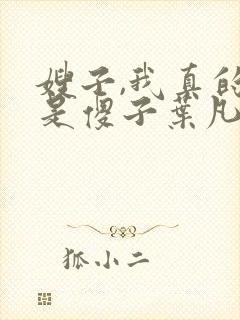 嫂子,我真的
是傻子葉凡
狐小二